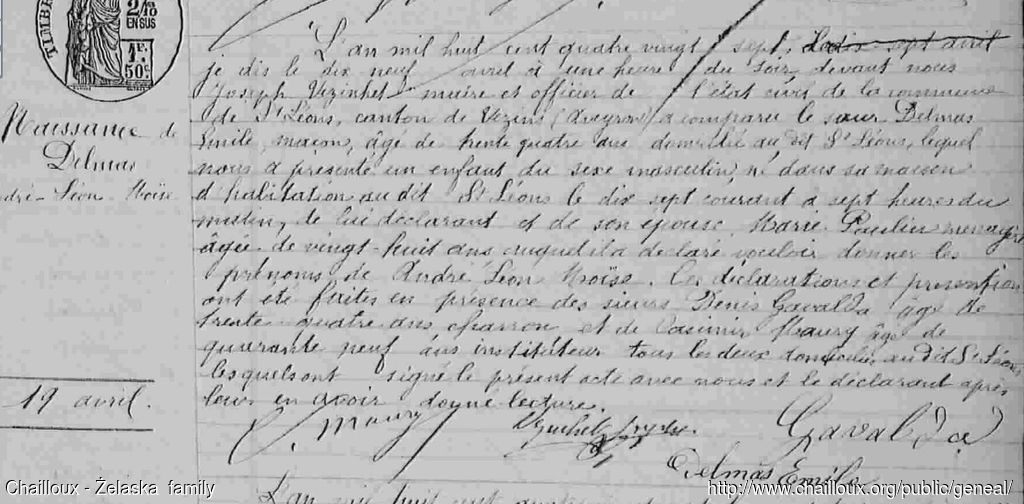 TIMBRE
2/10
EN SUS
1F.
50c
Naissance de
Delmas
dré-Léon-Moïse
19 avril.
L'an mil huit cent quatre vingt sept, le dix-sept avril
je dis le dix neuf avril à une heure du soir, devant nous
Joseph Vézinhet maire et officier de l'état civil de la commune
de St Léons, canton de Vezins (Aveyron) a comparu le sieur Delmas
Emile, maçon, âgé de trente quatre ans domicilié au dit St Léons, lequel
nous a présenté un enfant du sexe masculin, né dans sa maison
d'habitation au dit St Léons le dix sept courant à sept heures du
matin, de lui déclarant et de son épouse Marie Paulin
âgée de vingt-huit ans auquel il a déclaré vouloir donner les
prénoms de André Léon Moïse. Les déclarations et présentation
ont été faites en présence des sieurs Denis Gavalda âgé de
trente-quatre ans charron et de Casimir Maury âgé de
quarante neuf ans instituteur tous les deux domiciliés au dit St Léons
lesquels ont signé le présent acte avec nous et le déclarant après
leur en avoir donné lecture.
C. Maury
Gavalda
Delmas Emile
L'an mil huit cent quatre
Chailloux - Żelaska family
http://www.chailloux.org/public/geneal/